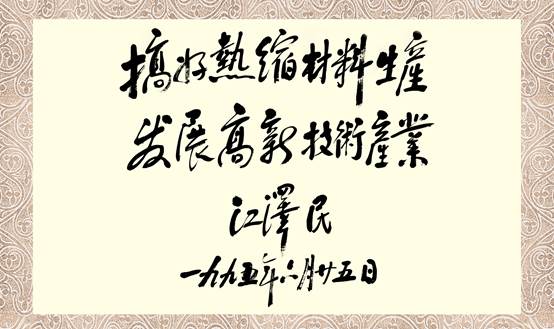 搞好熱縮材料生產
发展高新技術產業
江澤民
一九九五年六月廿五日